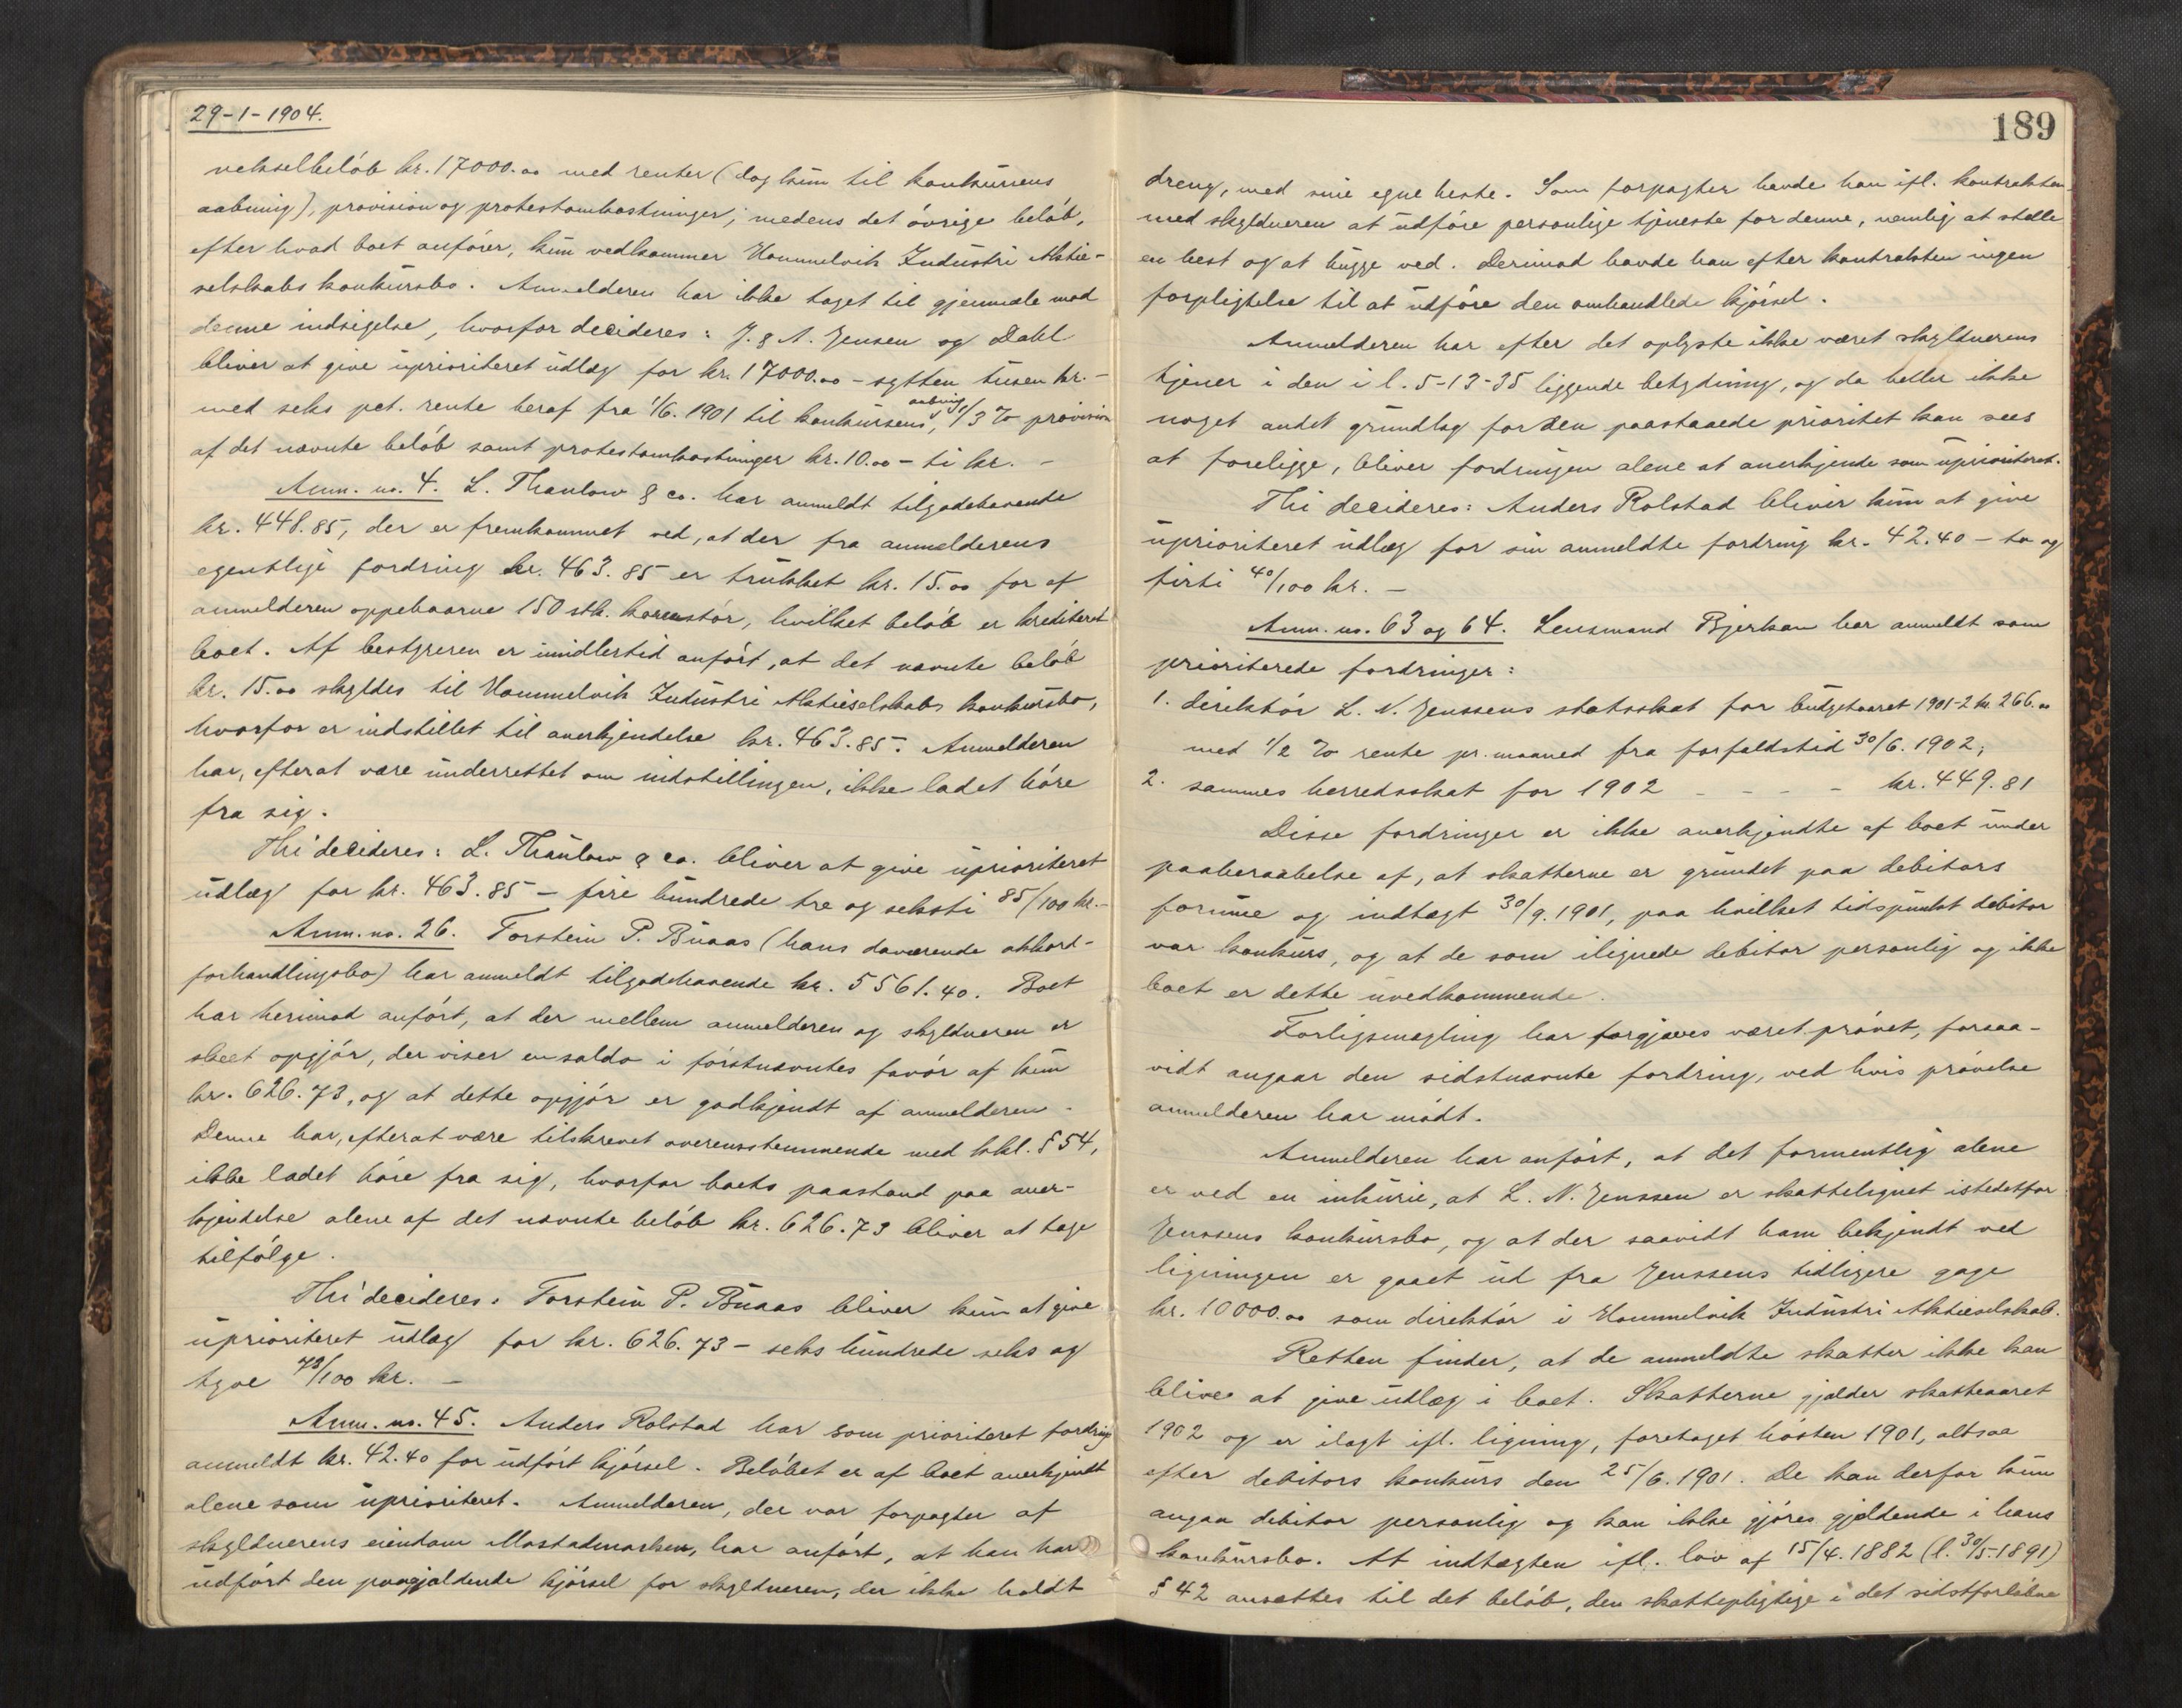 29-1-1904.
vekselbeløb kr. 17000.00 med renter (dog kun til konkursens
aabning), provision og protestomkostninger; medens det øvrige beløb,
efter hvad boet anfører, kun vedkommer Hommelvik Industri Aktie-
selskabs konkursbo. Anmelderen har ikke taget til gjenmæle mod
denne indsigelse, hvorfor decideres: J. & A. Jensen og Dahl
bliver at give uprioriteret udlæg for kr. 17000.00 - sytten tusen kr. -
med seks pct. rente heraf fra 1/6. 1901 til konkursens aabning, 1/3 % provision
af det nævnte beløb samt protestomkostninger kr. 10.00 - ti kr. -
Anm. no. 4. L. Thaulow & co. har anmeldt tilgodehavende
kr. 448.85, der er fremkommet ved, at der fra anmelderens
egentlige fordring kr. 463.85 er trukket kr. 15.00 for af
anmelderen oppebaarne 150 stk. kornstør, hvilket beløb er krediteret
boet. Af bestyreren er imidlertid anført, at det nævnte beløb
kr. 15.00 skyldes til Hommelvik Industri Aktieselskabs konkursbo,
hvorfor er indstillet til anerkjendelse kr. 463.85. Anmelderen
har, efter at være underrettet om indstillingen, ikke ladet høre
fra sig.
Thi decideres: L. Thaulow & co. bliver at give uprioriteret
udlæg for kr. 463.85 - fire hundrede tre og seksti 85/100 kr. -
Anm. no. 26. Torstein P. Buaas (hans daværende akkord-
forhandlingsbo) har anmeldt tilgodehavende kr. 5561.40. Boet
har herimod anført, at der mellem anmelderen og skyldneren er
skeet opgjør, der viser en saldo i førstnævntes favør af kun
kr. 626.73, og at dette opgjør er godkjendt af anmelderen.
Denne har, efter at være tilskrevet overensstemmende med kkl. § 54,
ikke ladet høre fra sig, hvorfor boets paastand paa aner-
kjendelse alene af det nævnte beløb kr. 626.73 bliver at tage
tilfølge.
Thi decideres: Torstein P. Buaas bliver kun at give
uprioriteret udlæg for kr. 626.73 - seks hundrede seks og
tyve 73/100 kr. -
Anm. no. 45. Anders Rolstad har som prioriteret fordring
anmeldt kr. 42.40 for udført kjørsel. Beløbet er af boet anerkjendt
alene som uprioriteret. Anmelderen, der var forpagter af
skyldnerens eiendom Mostadmarken, har anført, at han har
udført den paagjældende kjørsel for skyldneren, der ikke holdt
189
dreng, med sine egne heste. Som forpagter havde han ifl. kontrakten
med skyldneren at udføre personlige tjeneste for denne, nemlig at stelle
en hest og at hugge ved. Derimod havde han efter kontrakten ingen
forpligtelse til at udføre den omhandlede kjørsel.
Anmelderen har efter det oplyste ikke været skyldnerens
tjener i den i l. 5-13-35 liggende betydning, og da heller ikke
noget andet grundlag for den paastaaede prioritet kan sees
at foreligge, bliver fordringen alene at anerkjende som uprioriteret.
Thi decideres: Anders Rolstad bliver kun at give
uprioriteret udlæg for sin anmeldte fordring kr. 42.40 - to og
firti 40/100 kr. -
Anm. no. 63 og 64. Lensmand Bjerkan har anmeldt som
prioriterede fordringer:
1. direktør L. N. Jenssens statsskat for budgetaaret 1901-2 kr. 266.00
med 1/2 % rente pr. maaned fra forfaldstid 30/6. 1902;
2. sammes herredsskat for 1902 - - - - kr. 449.81
Disse fordringer er ikke anerkjendte af boet under
paaberaabelse af, at skatterne er grundet paa debitors
formue og indtægt 30/9. 1901, paa hvilket tidspunkt debitor
var konkurs, og at de som ilignede debitor personlig og ikke
boet er dette uvedkommende.
Forligsmægling har forgjæves været prøvet, forsaa-
vidt angaar den sidstnævnte fordring, ved hvis prøvelse
anmelderen har mødt.
Anmelderen har anført, at det formentlig alene
er ved en inkurie, at L. N. Jenssen er skattelignet istedetfor
Jenssens konkursbo, og at der saavidt ham bekjendt ved
ligningen er gaaet ud fra Jenssens tidligere gage
kr. 10000.00 som direktør i Hommelvik Industri Aktieselskab.
Retten finder, at de anmeldte skatter ikke kan
blive at give udlæg i boet. Skatterne gjælder skatteaaret
1902 og er ilagt ifl. ligning, foretaget høsten 1901, altsaa
efter debitors konkurs den 25/6. 1901. De kan derfor kun
angaa debitor personlig og kan ikke gjøres gjeldende i hans
konkursbo. At indtægten ifl. lov af 15/4. 1882 (l. 30/5. 1891)
§ 42 ansættes til det beløb, den skattepligtige i det sidstforløbne